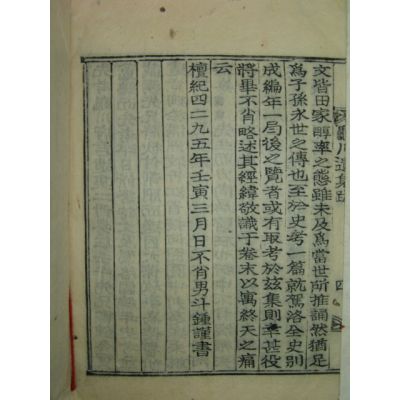 川遺集跋
四
文皆田家醇率之態雖未及爲當世所推誦然猶足
爲子孫永世之傳也至於史考一篇就駕洛全史別
成編年一局後之覽者或有取考於玆集則幸甚役
將畢不肖略述其經緯敬識于卷末以寓終天之痛
云
檀紀四二九五年壬寅三月日不肖男斗鍾謹書